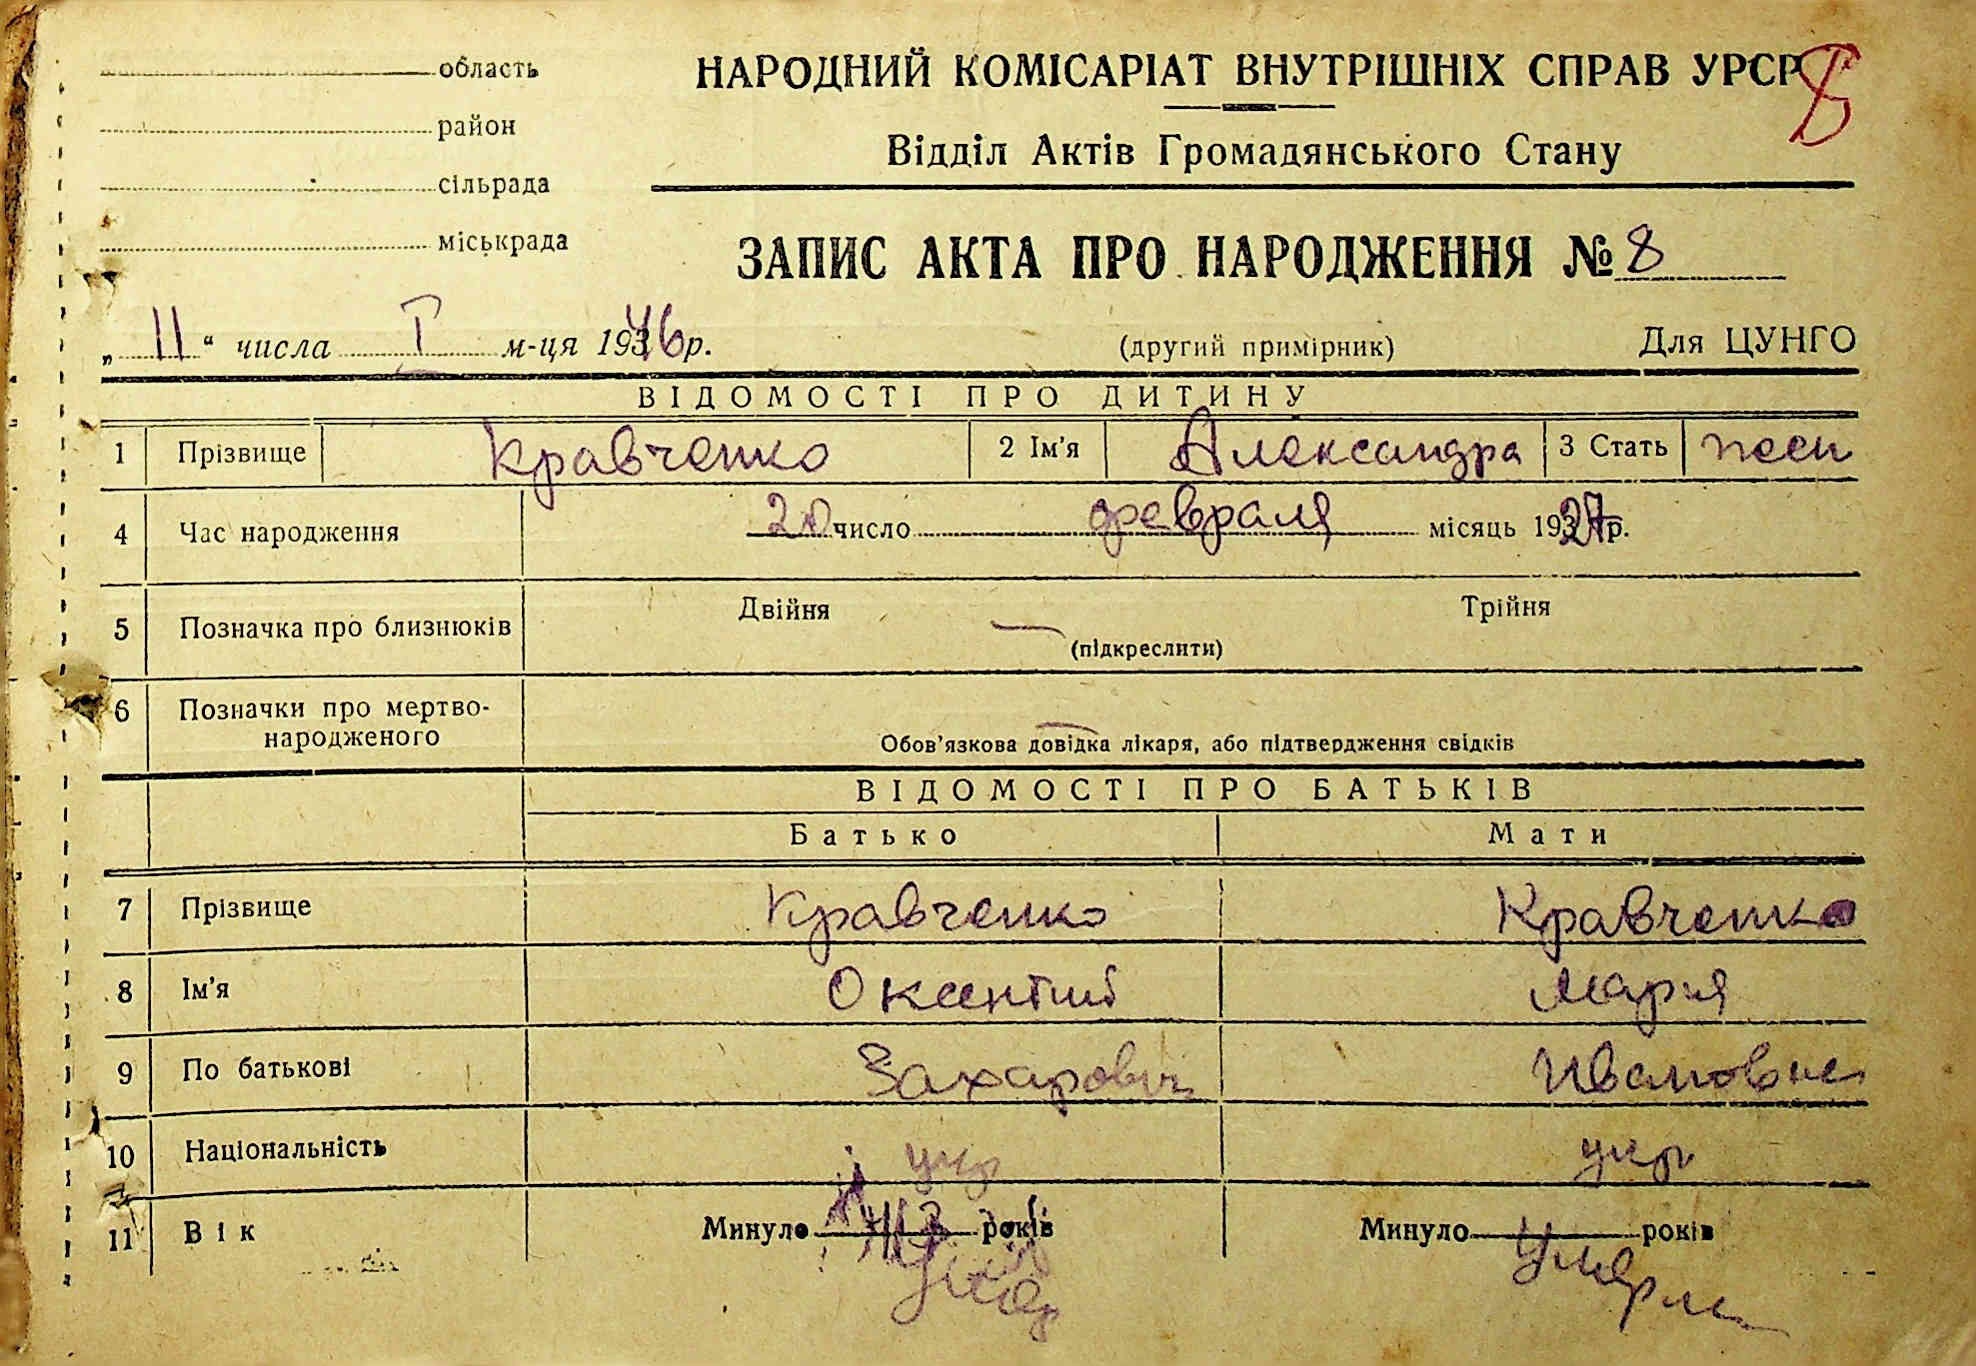 область
район
сільрада
міськрада
НАРОДНИЙ КОМІСАРІАТ ВНУТРІШНІХ СПРАВ УРСР
8
Відділ Актів Громадянського Стану
ЗАПИС АКТА ПРО НАРОДЖЕННЯ № 8
„ 11 “ числа I м-ця 1946 р. (другий примірник) Для ЦУНГО
ВІДОМОСТІ ПРО ДИТИНУ
1 Прізвище Кравченко 2 Ім’я Александра 3 Стать жен
4 Час народження 20 число февраля місяць 1927 р.
5 Позначка про близнюків Двійня — Трійня
(підкреслити)
6 Позначки про мертво-
народженого
Обов’язкова довідка лікаря, або підтвердження свідків
ВІДОМОСТІ ПРО БАТЬКІВ
Батько Мати
7 Прізвище Кравченко Кравченко
8 Ім’я Оксентий Мария
9 По батькові Захарович Ивановна
10 Національність укр укр
11 Вік Минуло років Минуло років
Умер Умерла